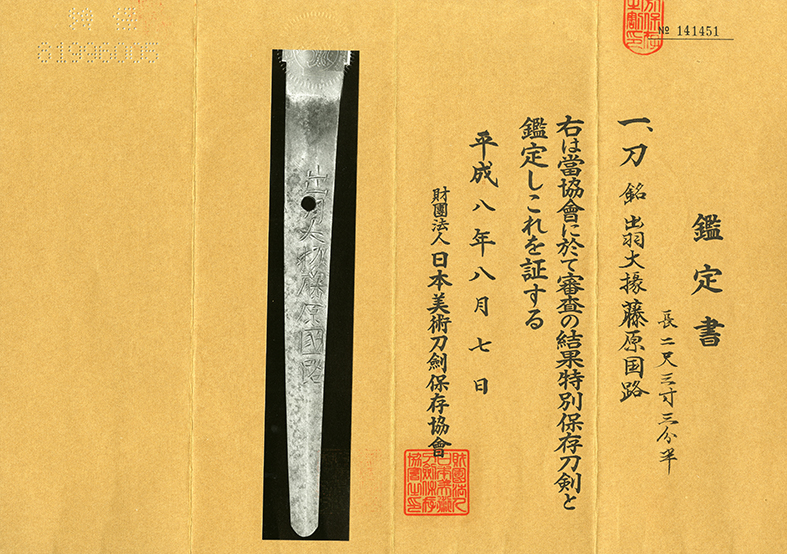 鑑定書
一、刀 銘 出羽大掾藤原国路
長二尺三寸三分半
右は當協會に於て審査の結果特別保存刀剣と
鑑定しこれを証する
平成八年八月七日
財團法人 日本美術刀劍保存協會
№ 141451
出羽大掾藤原國路
特 保
61996005